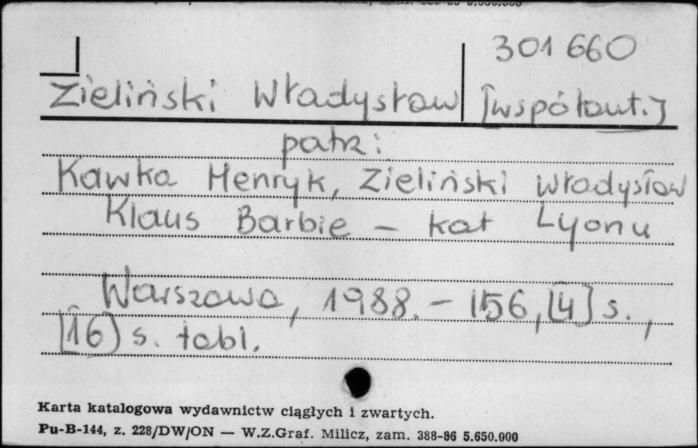 301660
Zieliński Władysław [współaut.]
patrz:
Kawka Henryk, Zieliński Władysław
Klaus Barbie – kat Lyonu
Warszawa, 1988. – 156, [4] s.,
[16] s. tabl.
Karta katalogowa wydawnictw ciągłych i zwartych.
Pu-B-144, z. 228/DW/ON — W.Z.Graf. Milicz, zam. 388-86 5.650.000